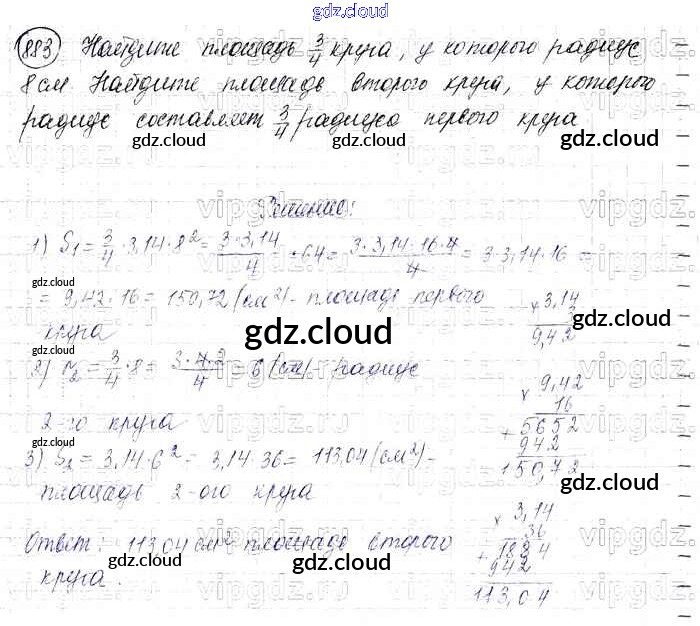 gdz.cloud
883 Найдите площадь 3/4 круга, у которого радиус
8 см. Найдите площадь второго круга, у которого
радиус составляет 3/4 радиуса первого круга
gdz.cloud gdz.cloud
Решение:
1) S₁ = 3/4 · 3,14 · 8² = 3·3,14/4 · 64 = 3·3,14·16·4/4 = 3·3,14·16 =
gdz.cloud
= 9,42 · 16 = 150,72 (см²) - площадь первого
круга
× 3,14
3
9,42
gdz.cloud
gdz.cloud
gdz.cloud
2) r₂ = 3/4 · 8 = 3·4·2/4 = 6 (см) - радиус
2-го круга
× 9,42
16
+ 5652
942
150,72
gdz.cloud
3) S₂ = 3,14 · 6² = 3,14 · 36 = 113,04 (см²) -
площадь 2-ого круга
gdz.cloud
× 3,14
36
+ 1884
942
113,04
Ответ: 113,04 см² площадь второго
круга.
gdz.cloud
gdz.cloud
gdz.cloud